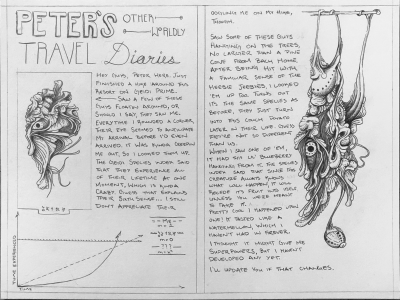 PETER'S OTHER-WORLDLY
TRAVEL Diaries
HEY GUYS, PETER HERE. JUST
FINISHED A HIKE AROUND THIS
RESORT ON GEIDI PRIME.
SAW A FEW OF THESE
GUYS FLOATIN AROUND, OR
SHOULD I SAY, THEY SAW ME.
EVERYTIME I ROUNDED A CORNER
THEIR EYE SEEMED TO ANTICIPATE
MY ARRIVAL BEFORE I'D EVEN
ARRIVED. IT WAS KINDA CREEPIN
ME OUT, SO I LOOKED THEM UP.
THE GEIDI SPECIES INDEX SAID
THAT THEY EXPERIENCE ALL
OF THEIR LIFETIME AT ONE
MOMENT, WHICH IS KINDA
CRAZY. GUESS THAT EXPLAINS
THEIR SIXTH SENSE... I STILL
DON'T APPRECIATE THEIR
TIME EXPERIENCED
TIME
OOGLING ME ON MY HIKE,
THOUGH.
SAW SOME OF THESE GUYS
HANGING ON THE TREES,
NO LARGER THAN A PINE
CONE FROM BACK HOME.
AFTER BEING HIT WITH
A FAMILIAR SENSE OF THE
HEEBIE JEEBIES, I LOOKED
'EM UP TOO. TURNS OUT
ITS THE SAME SPECIES AS
BEFORE, THEY JUST TURN
INTO THIS COUCH POTATO
LATER IN THEIR LIFE. GUESS
THEY'RE NOT SO DIFFERENT
THAN US.
WHEN I SAW ONE OF EM,
IT HAD EM LIL' BLUEBERRY
HANGING FROM IT. THE SPECIES
INDEX SAID THAT SINCE THE
CREATURE ALWAYS KNOWS
WHAT WILL HAPPEN, IT WILL
UNLESS YOU WERE MEANT
TO TAKE IT.
PRETTY COOL I HAPPENED UPON
ONE! IT TASTED LIKE A
WATERMELON, WHICH I
HAVEN'T HAD IN FOREVER.
I THOUGHT IT MIGHT GIVE ME
SUPERPOWERS, BUT I HAVEN'T
DEVELOPED ANY YET.
I'LL UPDATE YOU IF THAT CHANGES.